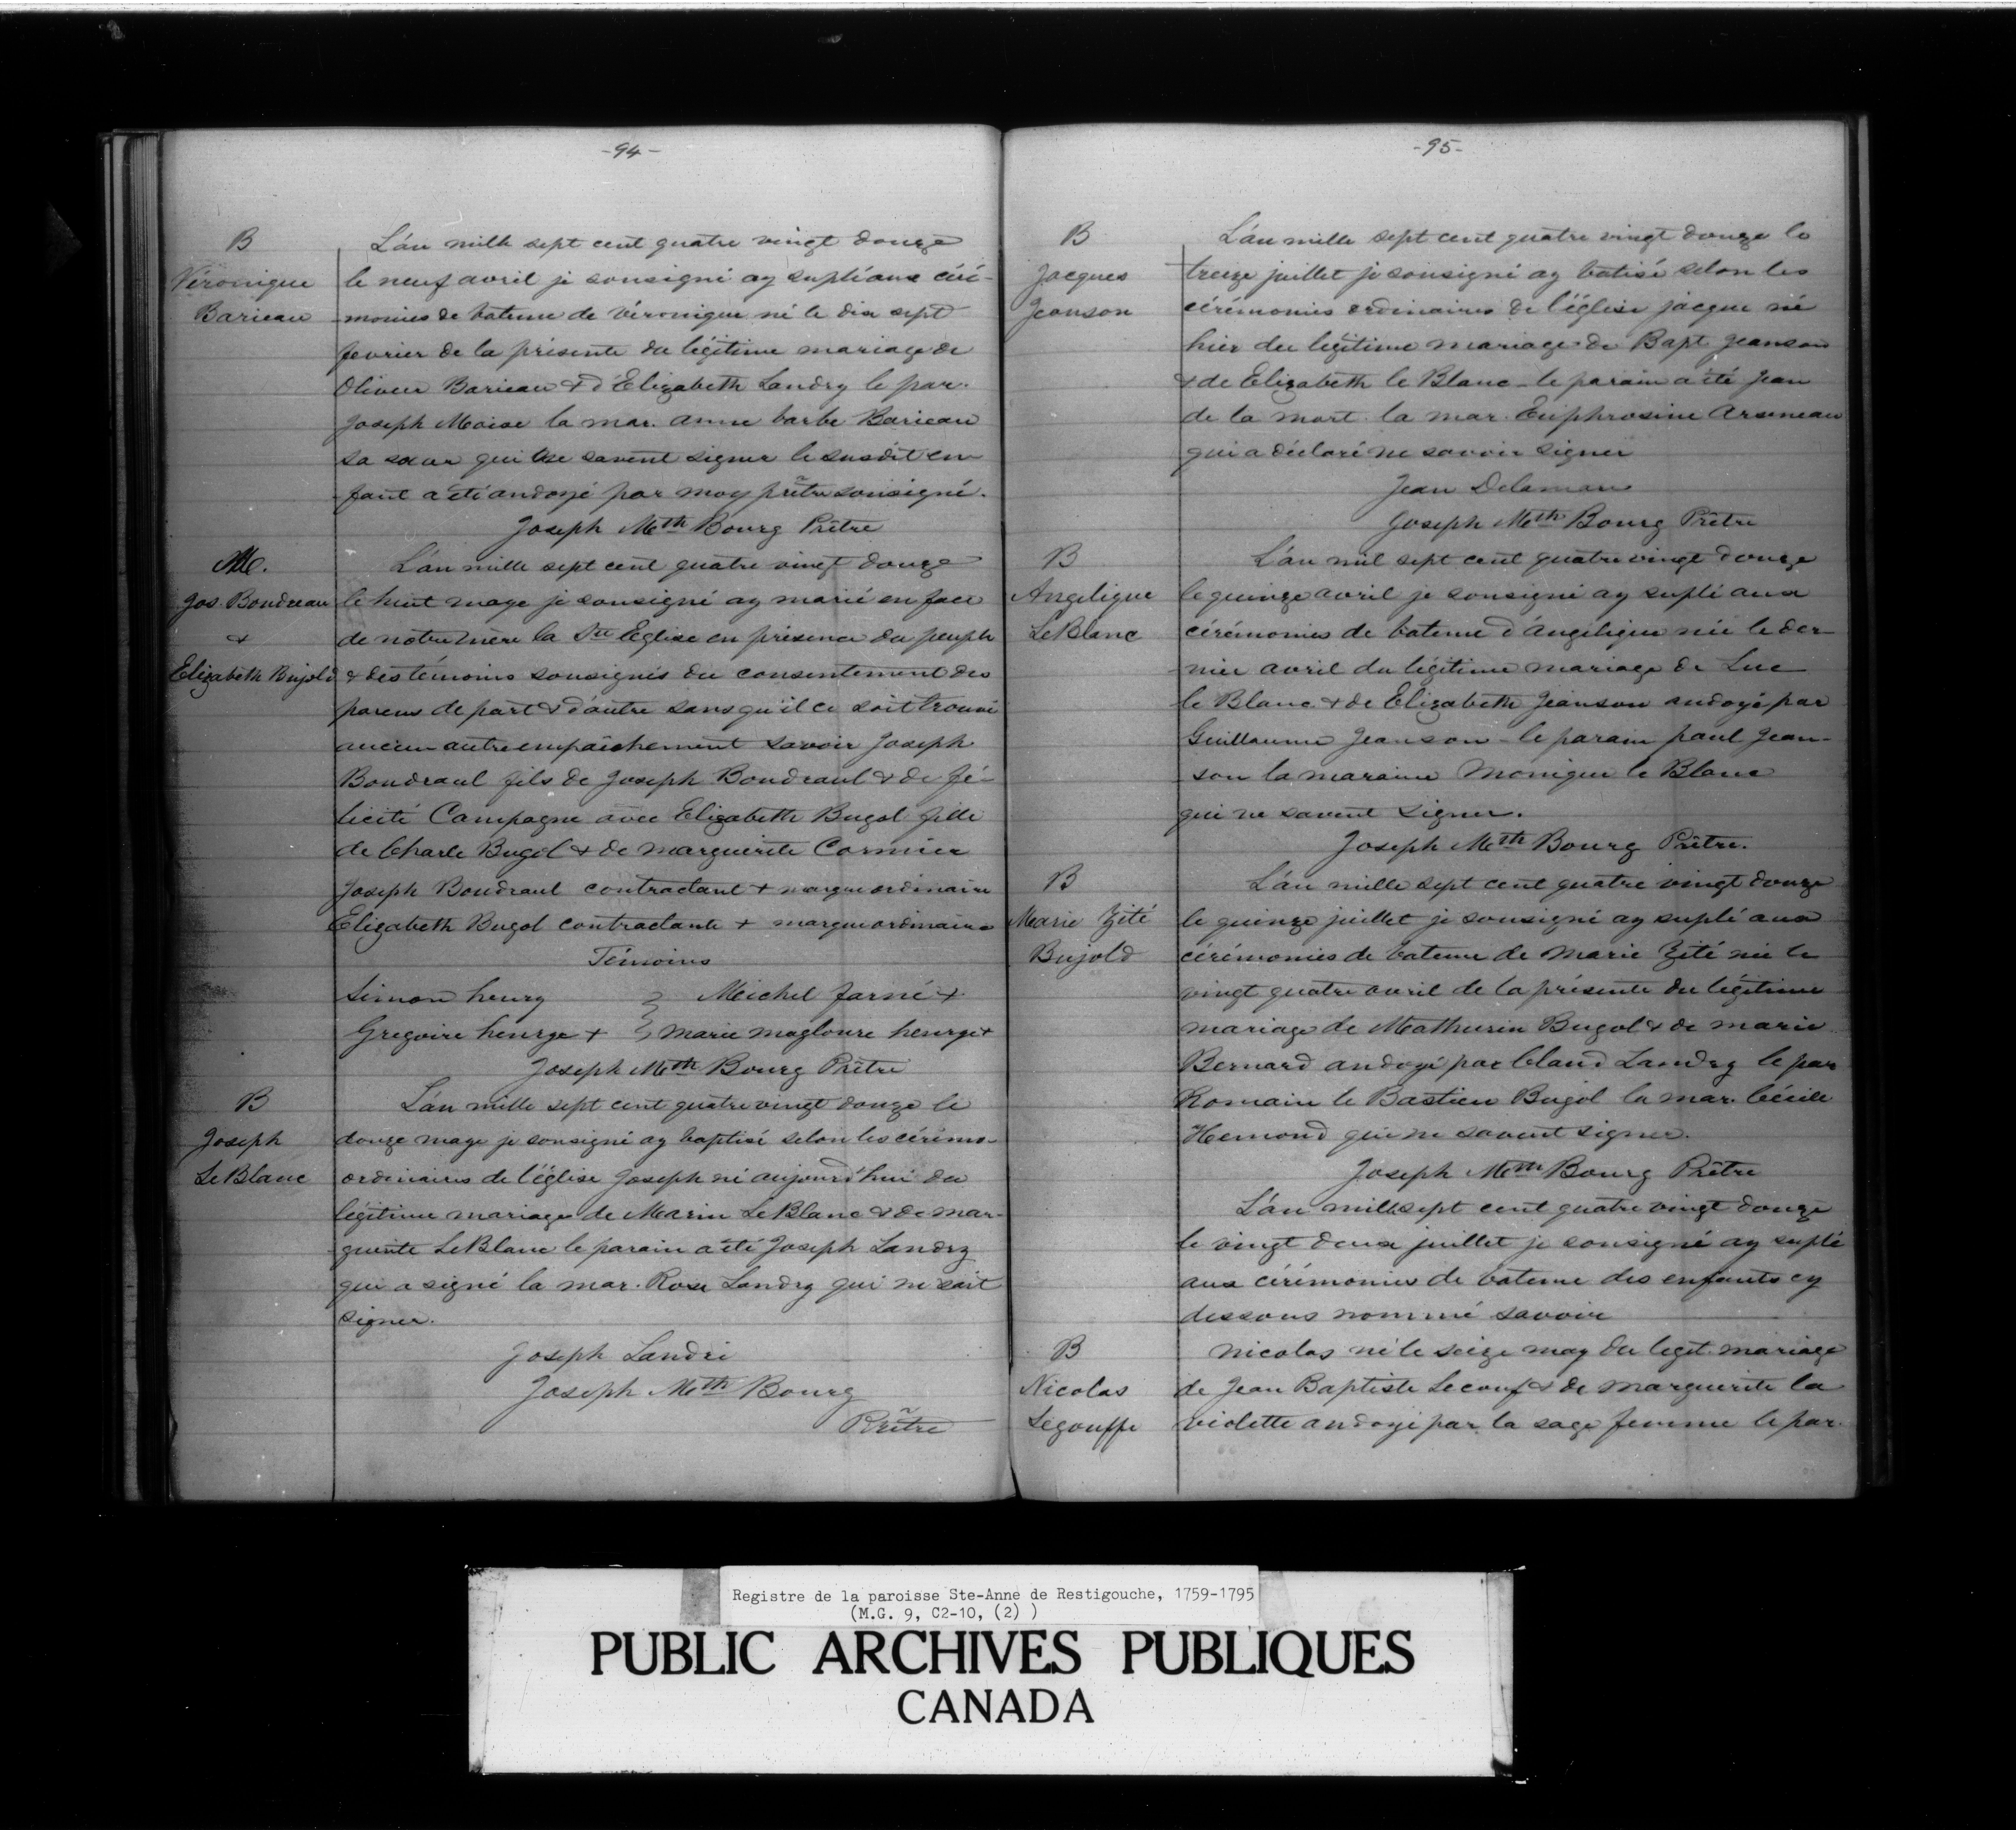 -94-
B
Véronique
Barieau
L'an mille sept cent quatre vingt douze
le neuf avril je sousigné ay suplé aux céré-
monies de bateme de Véronique né le dix sept
fevrier de la présente du légitime mariage de
Olivier Barieau & d'Elizabeth Landry le par.
Joseph Moise la mar. anne barbe Barieau
sa sœur qui ne savent signer le susdit en-
fant a été andoyé par moy prêtre sousigné.
Joseph Mth Bourg Prêtre
M.
Jos. Boudreau
&
Elizabeth Bujold
L'an mille sept cent quatre vingt douze
le huit maye je sousigné ay marié en face
de notre mère la Ste Eglise en présence du peuple
& des témoins sousignés du consentement des
parens de part & d'autre sans qu'il ce soit trouvé
aucun autre empaichement savoir Joseph
Boudraul fils de Joseph Boudraul & de fé-
licité Campagne avec Elizabeth Bugol fille
de Charle Bugol & de marguerite Cormier
Joseph Boudraul contractant + marque ordinaire
Elizabeth Bugol contractante + marque ordinaire
Témoins
Simon henry } Michel farné +
Gregoire henrye + } marie magloure henrye +
Joseph Mth Bourg Prêtre
B
Joseph
LeBlanc
L'an mille sept cent quatre vingt douze le
douze maye je sousigné ay baptisé selon les cérémo-
ordinaires de l'église Joseph né aujourd'hui du
légitime mariage de Marin LeBlanc & de mar-
guerite LeBlanc le parain a été Joseph Landry
qui a signé la mar. Rose Landry qui ne sait
signer.
Joseph Landri
Joseph Mth Bourg
Prêtre
-95-
B
Jacques
Jeanson
L'an mille sept cent quatre vingt douze le
treize juillet je sousigné ay batisé selon les
cérémonies ordinaires de l'église jacque né
hier du légitime mariage de Bapt Jeanson
& de Elizabeth le Blanc - le parain a été Jean
de la mort. la mar. Euphrosine Arseneau
qui a déclaré ne savoir signer
Jean Delamare
Joseph Mth Bourg Prêtre
B
Angelique
LeBlanc
L'an mil sept cent quatre vingt douze
le quinze avril je sousigné ay suplé aux
cérémonies de bateme d'angélique née le der-
nier avril du légitime mariage de Luc
le Blanc & de Elizabeth Jeanson andoyé par
Guillaume Jeanson - le parain paul Jean-
son la maraine Monique le Blanc
qui ne savent signer.
Joseph Mth Bourg Prêtre.
B
Marie Zité
Bujold
L'an mille sept cent quatre vingt douze
le quinze juillet je sousigné ay suplé aux
cérémonies de bateme de Marie Zité née le
vingt quatre avril de la présente du légitime
mariage de Mathurin Bugol & de marie
Bernard andoyé par Claud Landry le par
Romain le Bastien Bugol la mar. Cécile
Hemond qui ne savent signer.
Joseph Mth Bourg Prêtre
L'an mille sept cent quatre vingt douze
le vingt deux juillet je sousigné ay suplé
aux cérémonies de bateme des enfants cy
dessous nommé savoir
B
Nicolas
Legouffe
Nicolas né le seize may du legit. mariage
de Jean Baptiste Lecouf & de Marguerite la
violette andoyé par la sage femme le par.
Registre de la paroisse Ste-Anne de Restigouche, 1759-1795
(M.G. 9, C2-10, (2) )
PUBLIC ARCHIVES PUBLIQUES
CANADA